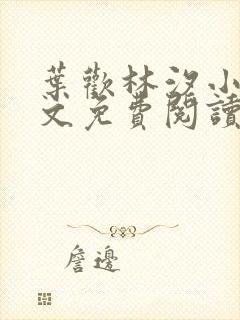 葉歡林汐小
文免費閱讀
詹邊